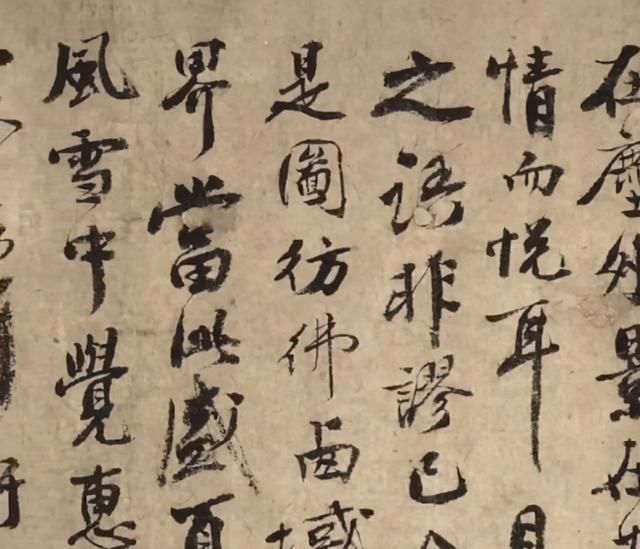 在塵外景在
情而悦耳目
之語非謬已
是圖彷彿西域
界當此盛夏
風雪中覺惠